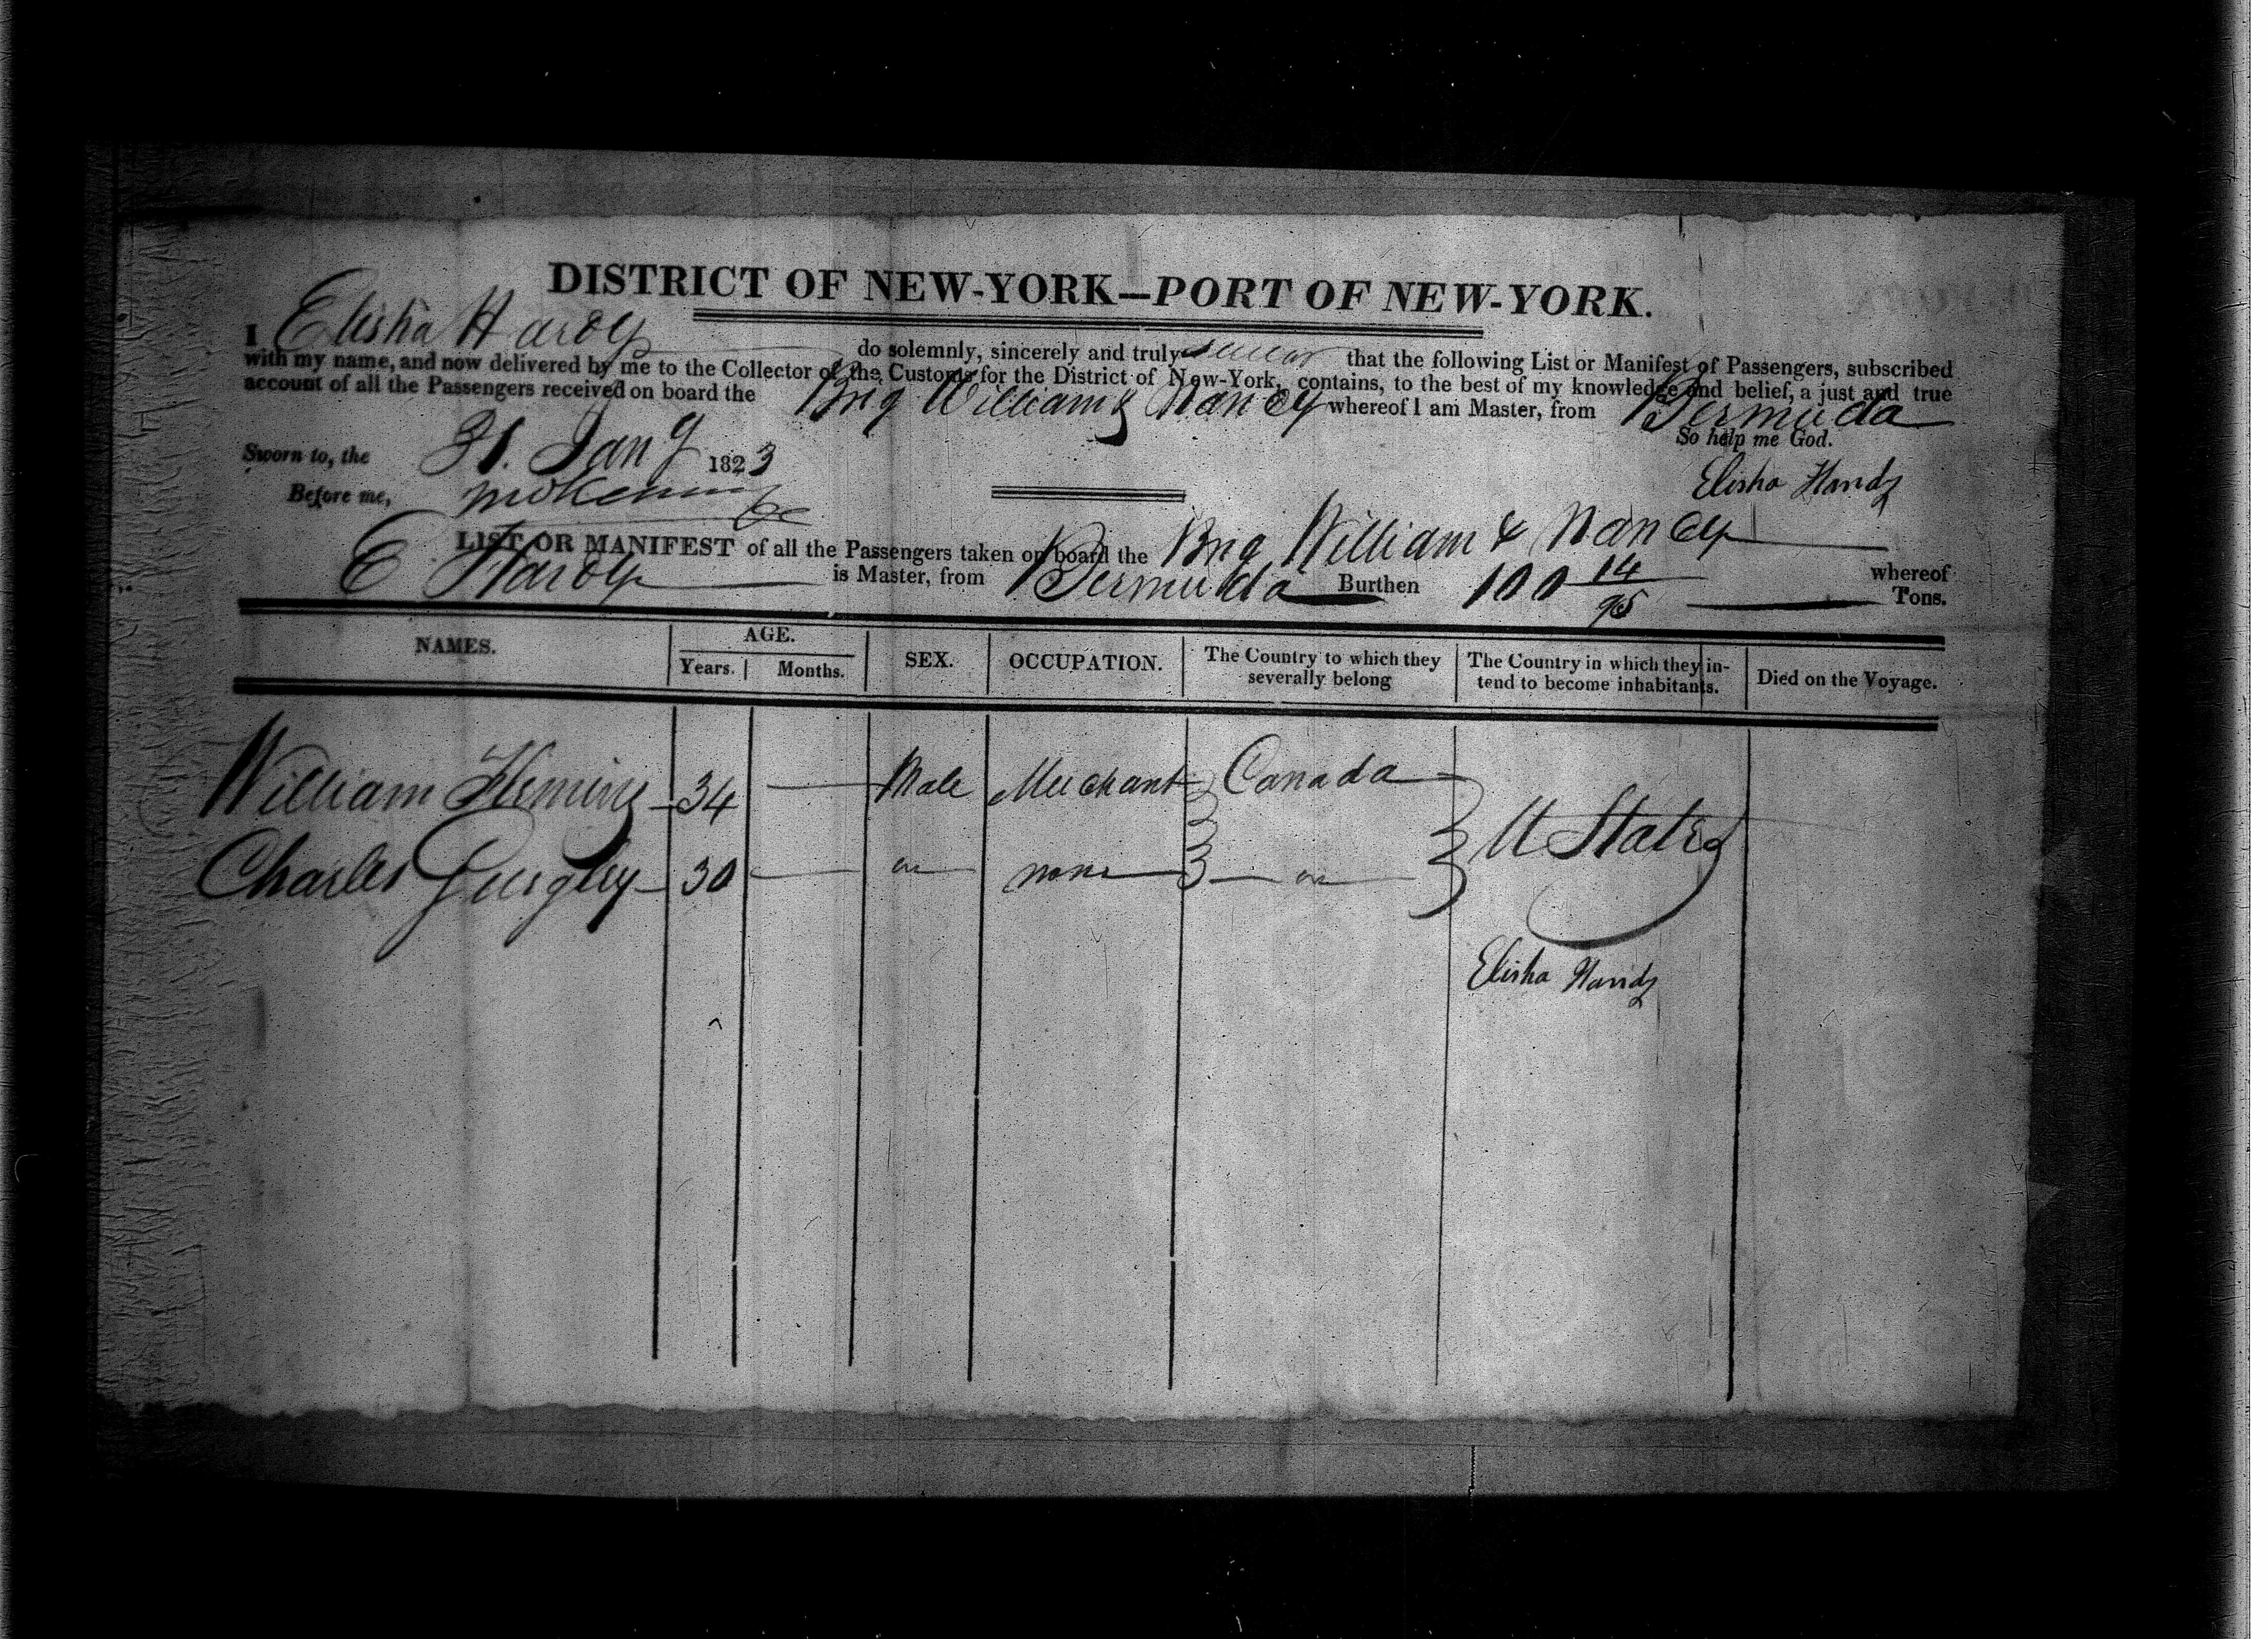 DISTRICT OF NEW-YORK—PORT OF NEW-YORK.
I Elisha Hardy do solemnly, sincerely and truly swear that the following List or Manifest of Passengers, subscribed
with my name, and now delivered by me to the Collector of the Customs for the District of New-York, contains, to the best of my knowledge and belief, a just and true
account of all the Passengers received on board the Brig William & Nancy whereof I am Master, from Bermuda
So help me God.
Sworn to, the 31. Jany 1823
Elisha Hardy
Before me,
LIST OR MANIFEST of all the Passengers taken on board the Brig William & Nancy whereof
E Hardy is Master, from Bermuda Burthen 100 14/95 Tons.
NAMES. AGE. Years. Months. SEX. OCCUPATION. The Country to which they severally belong The Country in which they intend to become inhabitants. Died on the Voyage.
William Fleming 34 Male Merchant Canada
U States
Charles 30 none
Elisha Hardy